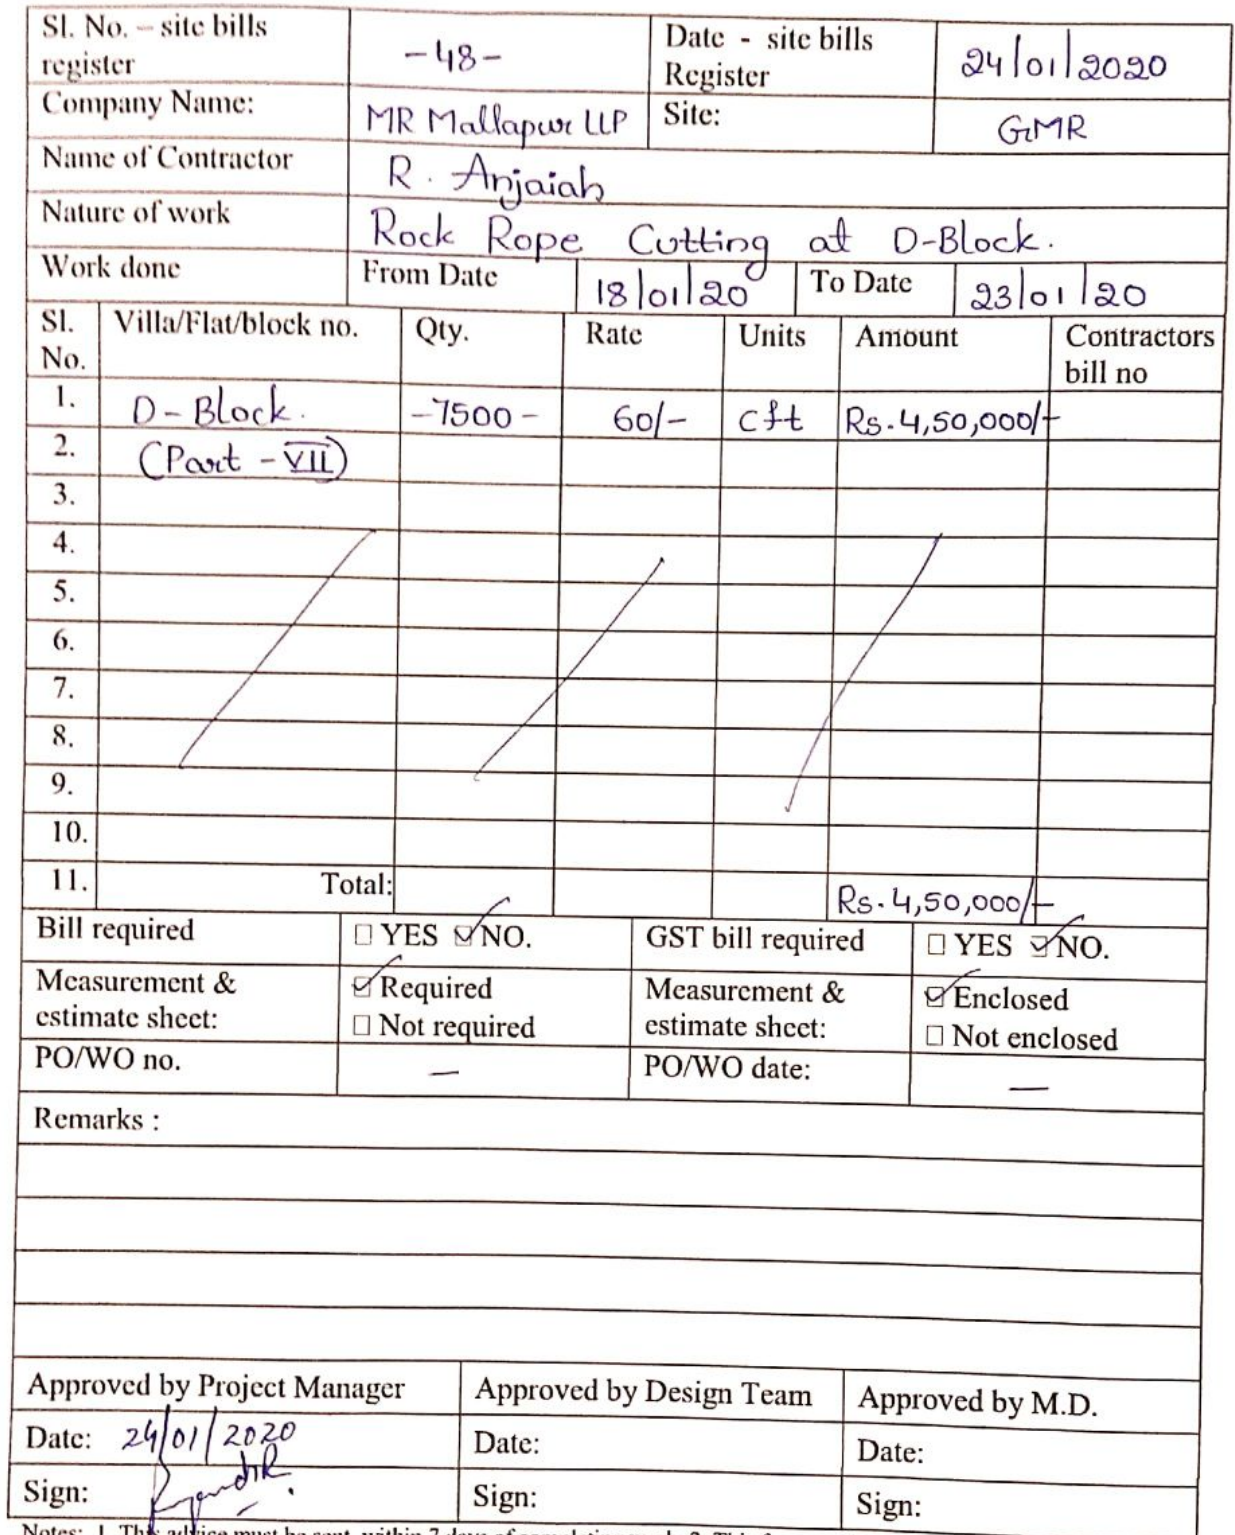 Sl. No. – site bills register -48- Date - site bills Register 24/01/2020
Company Name: MR Mallapur LLP Site: GMR
Name of Contractor R. Anjaiah
Nature of work Rock Rope Cutting at D-Block.
Work done From Date 18/01/20 To Date 23/01/20
Sl. No. Villa/Flat/block no. Qty. Rate Units Amount Contractors bill no
1. D-Block. -7500- 60/- cft Rs.4,50,000/-
2. (Part - VII)
3.
4.
5.
6.
7.
8.
9.
10.
11. Total: Rs.4,50,000/-
Bill required ☐ YES ☑ NO. GST bill required ☐ YES ☑ NO.
Measurement & estimate sheet: ☑ Required ☐ Not required Measurement & estimate sheet: ☑ Enclosed ☐ Not enclosed
PO/WO no. — PO/WO date: —
Remarks :
Approved by Project Manager Approved by Design Team Approved by M.D.
Date: 24/01/2020 Date: Date:
Sign: Sign: Sign:
Notes: 1. This advice must be sent within 7 days of